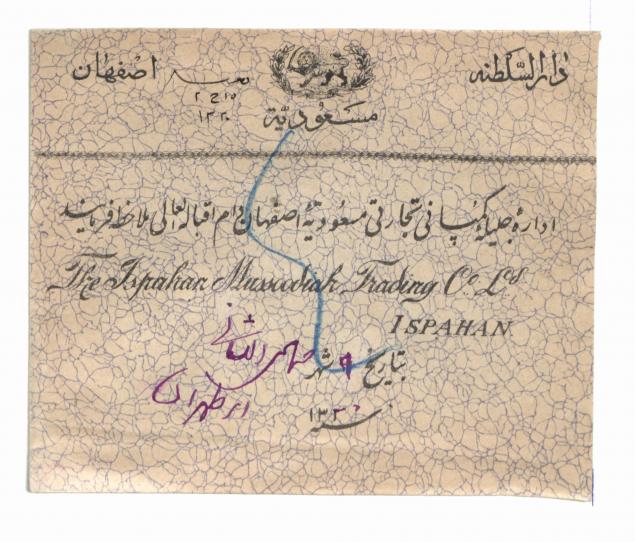 دارالسلطنه اصفهان
مسعودیّة
۱۵ ج ۲
۱۳۲۰
اداره جلیله کمپانی تجارتی مسعودیّهٔ اصفهان دام اقباله العالی ملاحظه فرمایند
The Ispahan Mussoodiah Trading Co. Ld.
ISPAHAN
بتاریخ ۹ شهر جمادی الثانی
از طهران
سنه ۱۳۲۰